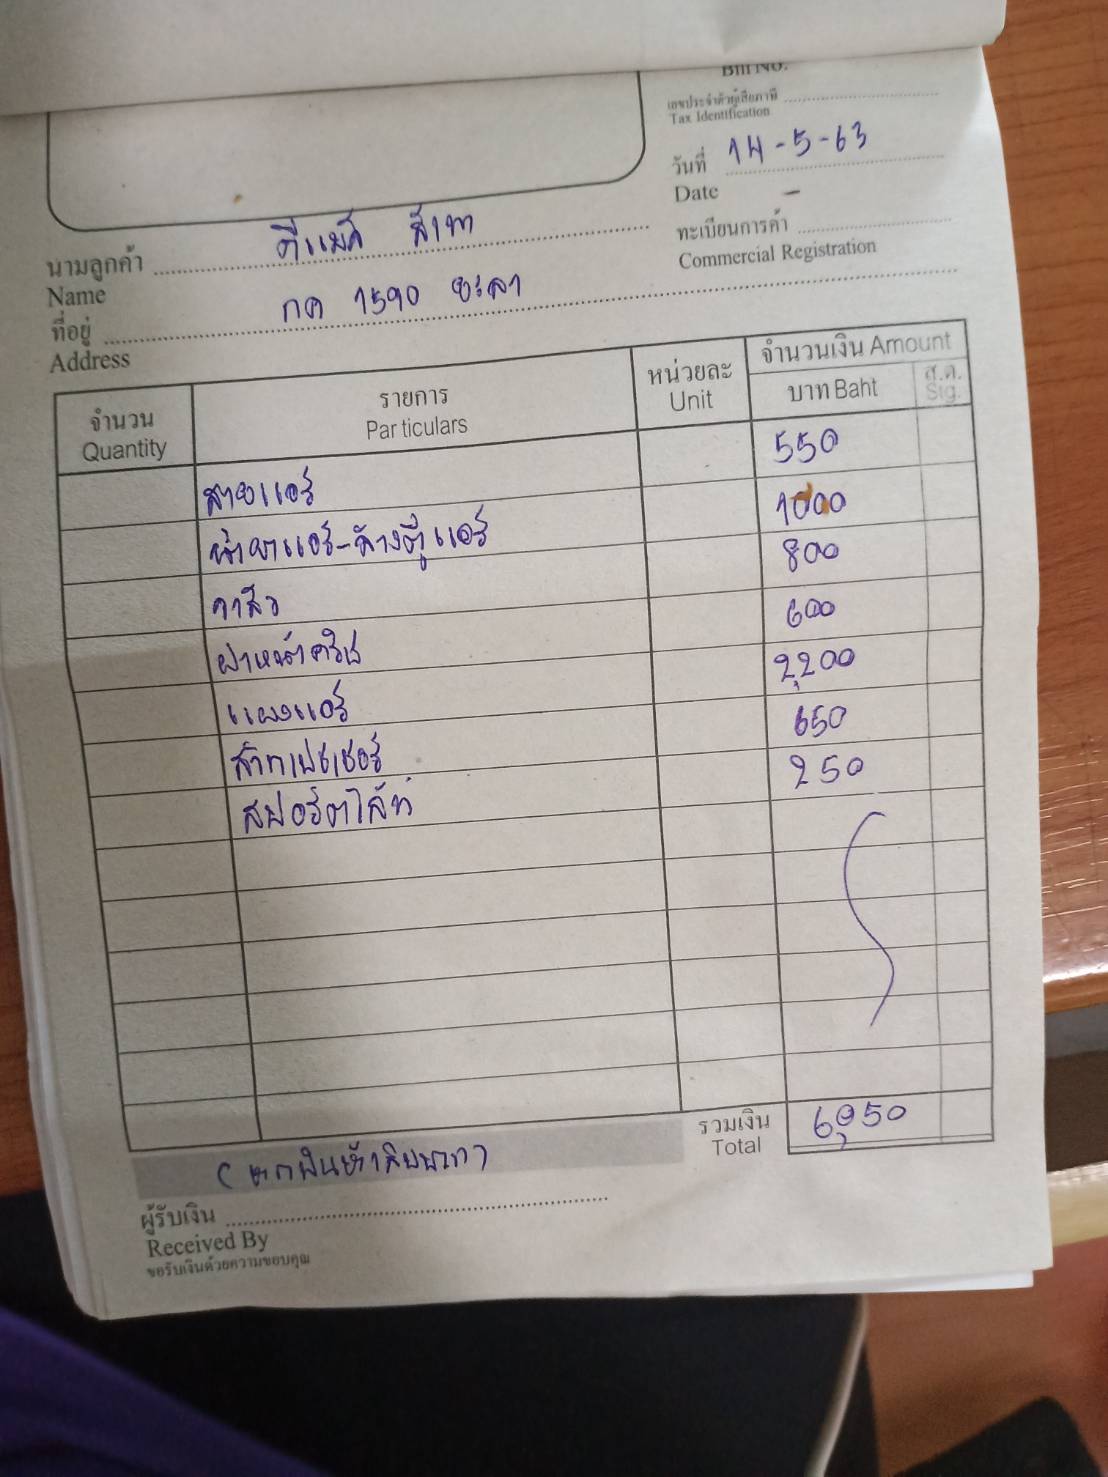 Bill No.
เลขประจำตัวผู้เสียภาษี
Tax Identification
วันที่ 14-5-63
Date -
ทะเบียนการค้า
Commercial Registration
นามลูกค้า ดีแม็ค สีเทา
Name
ที่อยู่ กค 1590 ยะลา
Address
จำนวน รายการ หน่วยละ จำนวนเงิน Amount
Quantity Particulars Unit บาท Baht ส.ต. Stg.
สายแอร์ 550
น้ำยาแอร์-ล้างตู้แอร์ 1000
วาล์ว 800
ฝาหน้าครัช 600
แผงแอร์ 2,200
650
สปอร์ตไล้ท์ 250
รวมเงิน 6,050
Total
(หกพันห้าสิบบาท)
ผู้รับเงิน
Received By
ขอรับเงินด้วยความขอบคุณ